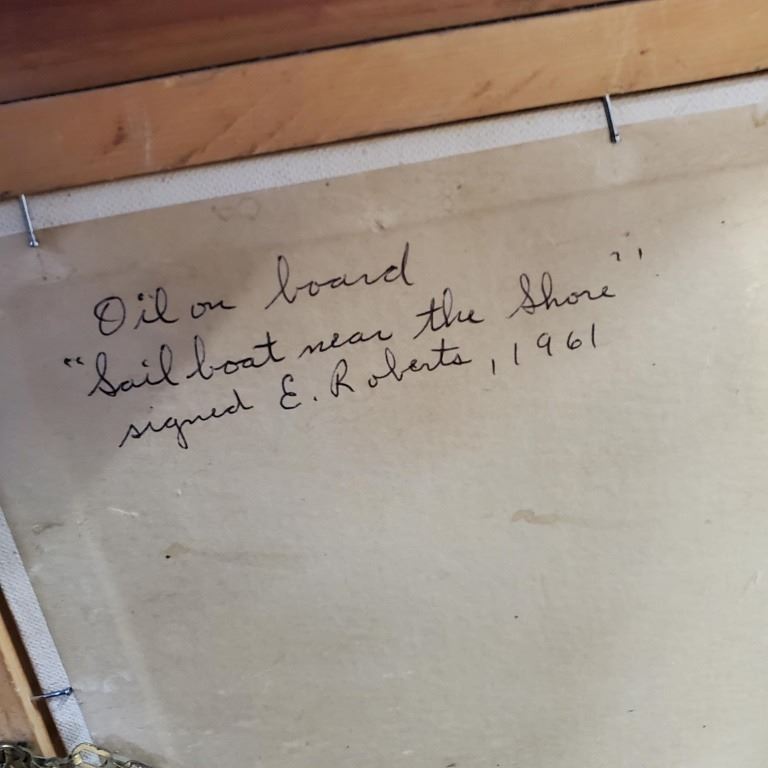 Oil on board
"Sail boat near the Shore"
signed E. Roberts, 1961